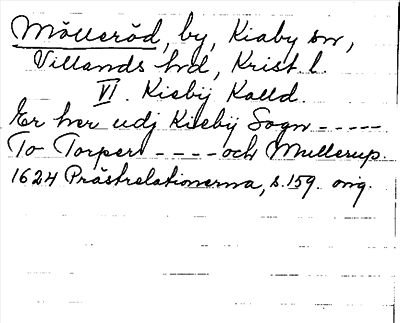 Mölleröd, by, Kiaby sn,
Villands hd, Krist. l.
VI. Kieby Kalld.
Er her udj Kieby Sogn -----
To Torper ---- och Mullerup.
1624 Prästrelationerna, s. 159. orig.